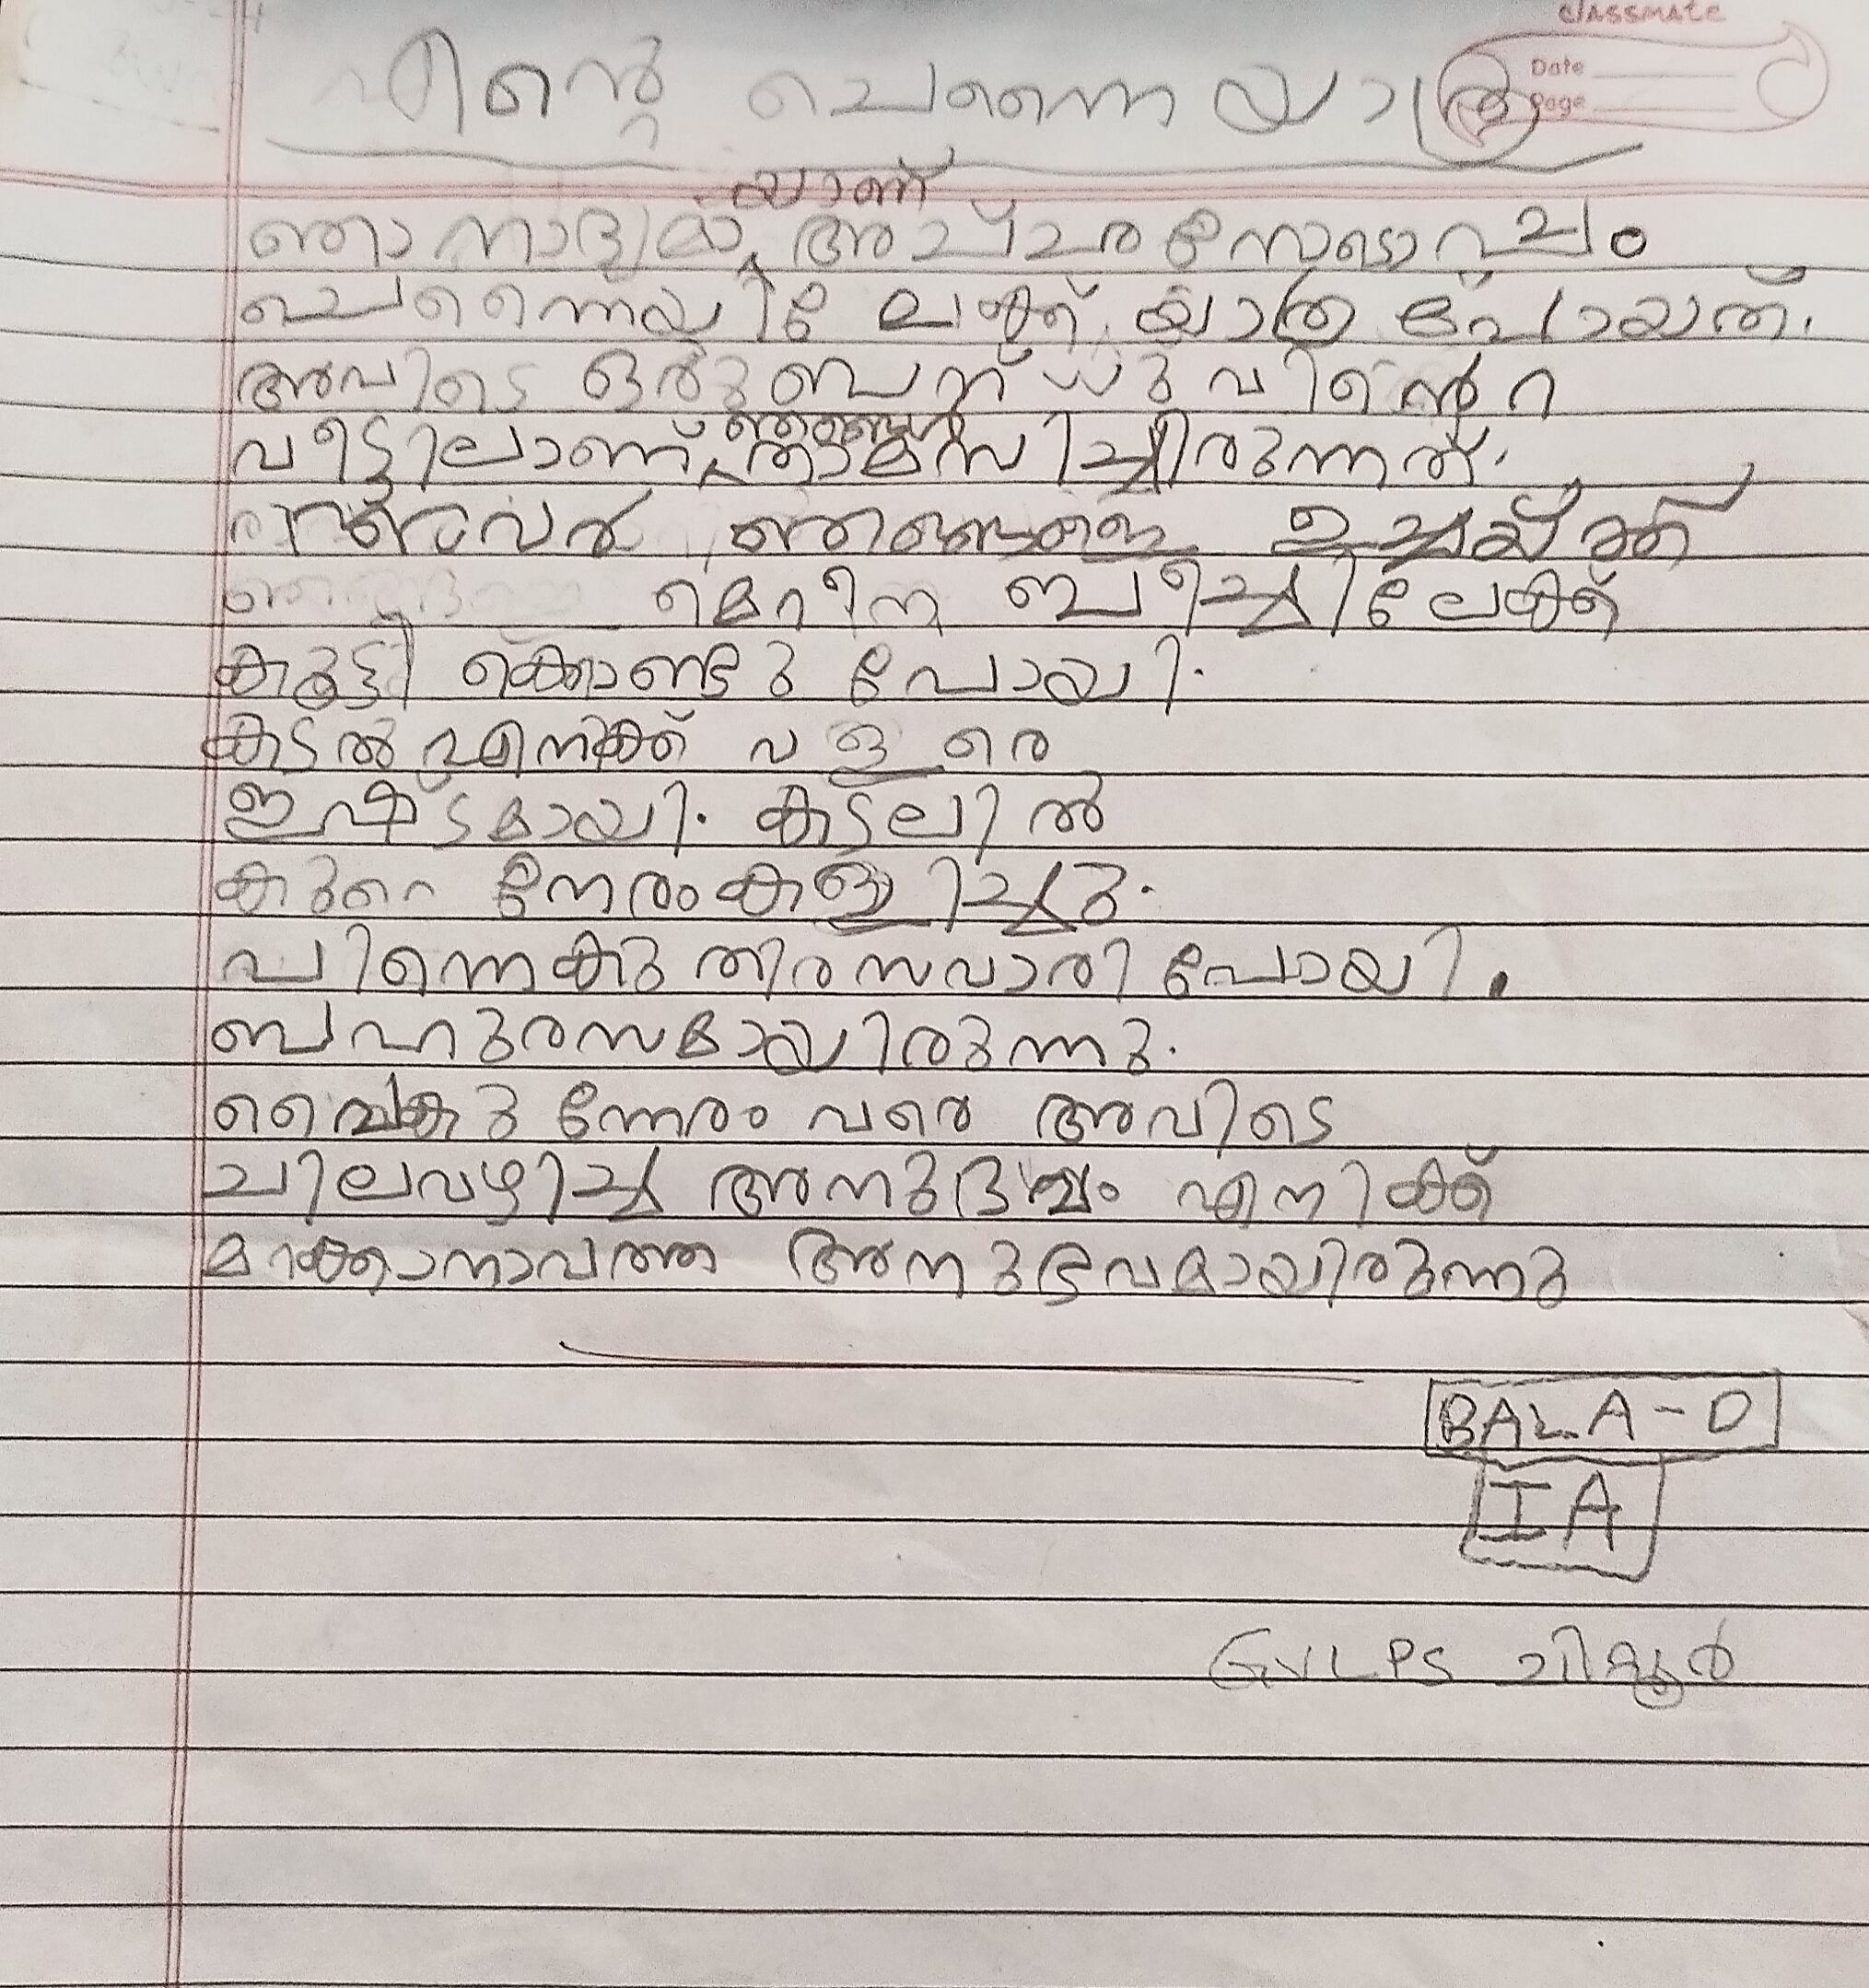 classmate
Date
Page
എന്റെ ചെന്നൈ യാത്ര
യാണ്
ഞാനാദ്യമായ് അച്ചനോടൊപ്പം
ചെന്നൈയിലേക്ക് യാത്ര പോയത്.
അവിടെ ഒരു ബന്ധുവിന്റെ
വീട്ടിലാണ് ഞങ്ങൾ താമസിച്ചിരുന്നത്.
അവർ ഞങ്ങളെ ഉച്ചയ്ക്ക്
മെറീന ബീച്ചിലേക്ക്
കൂട്ടി കൊണ്ടു പോയി.
കടൽ എനിക്ക് വളരെ
ഇഷ്ടമായി. കടലിൽ
കുറെ നേരംകളിച്ചു.
പിന്നെകുതിരസവാരി പോയി.
ബഹുരസമായിരുന്നു.
വൈകുന്നേരം വരെ അവിടെ
ചിലവഴിച്ച അനുഭവം എനിക്ക്
മറക്കാനാവത്ത അനുഭവമായിരുന്നു
BALA-D
IA
GVLPS